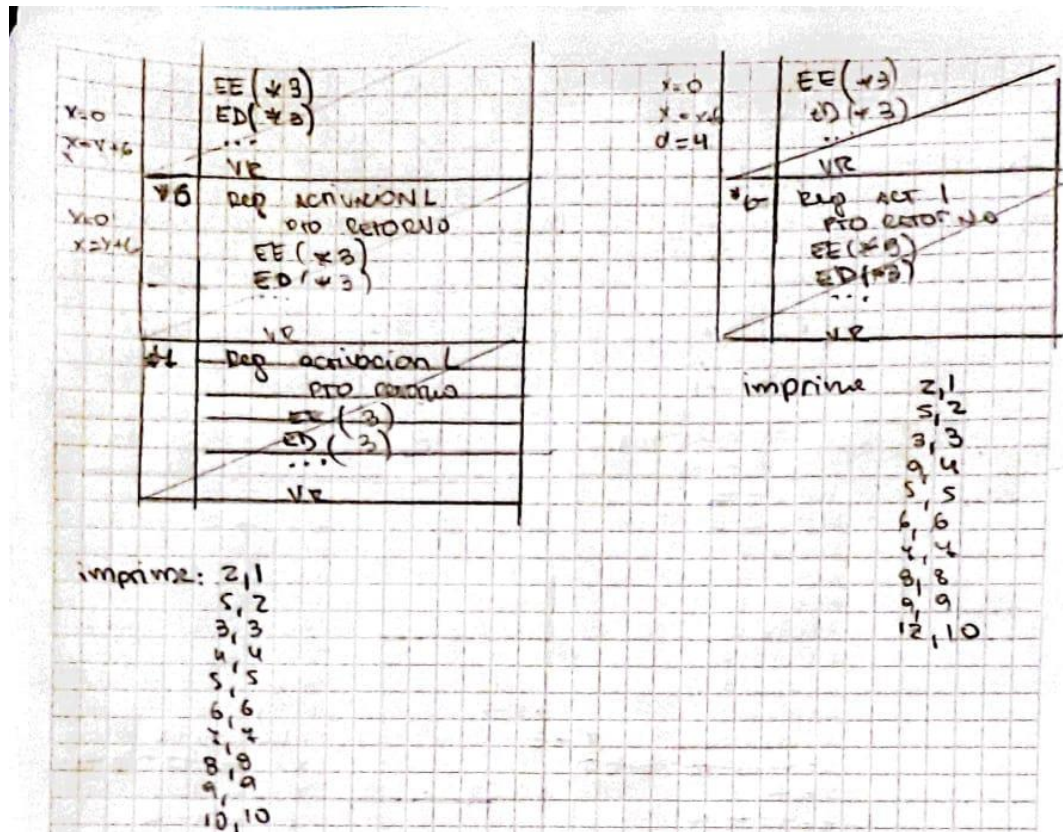 EE (*3)
x=0
ED(*3)
x=x+6
...
VR
*6
Reg ACTIVACION L
x=0
pto Retorno
x=x+6
EE (*3)
ED (*3)
...
VR
Reg activacion L
PTO retorno
EE ( 3)
ED ( 3)
...
VR
imprime: 2,1
5,2
3,3
4,4
5,5
6,6
7,7
8,8
9,9
10,10
x=0
EE (*3)
x=x+6
ED (*3)
d=4
...
VR
Reg ACT L
PTO RETORNO
EE (*3)
ED (*3)
...
VR
imprime 2,1
5,2
3,3
9,4
5,5
6,6
8,8
9,9
12,10